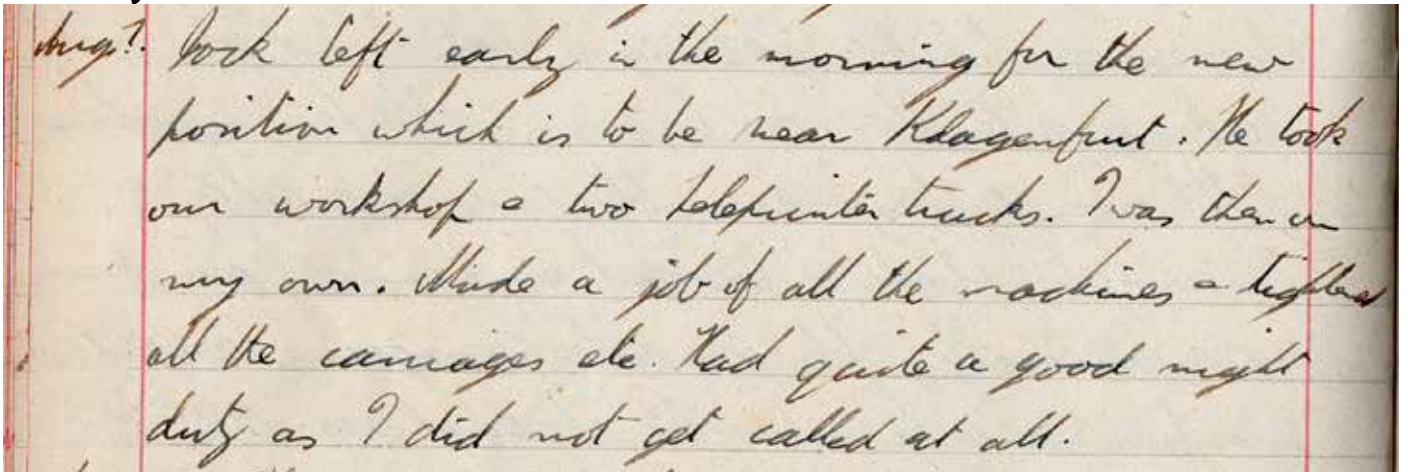 Aug 7. Jock left early in the morning for the new
position which is to be near Klagenfurt. He took
our workshop & two teleprinter trucks. I was then on
my own. Made a job of all the machines & tightened
all the carriages etc. Had quite a good night
duty as I did not get called at all.